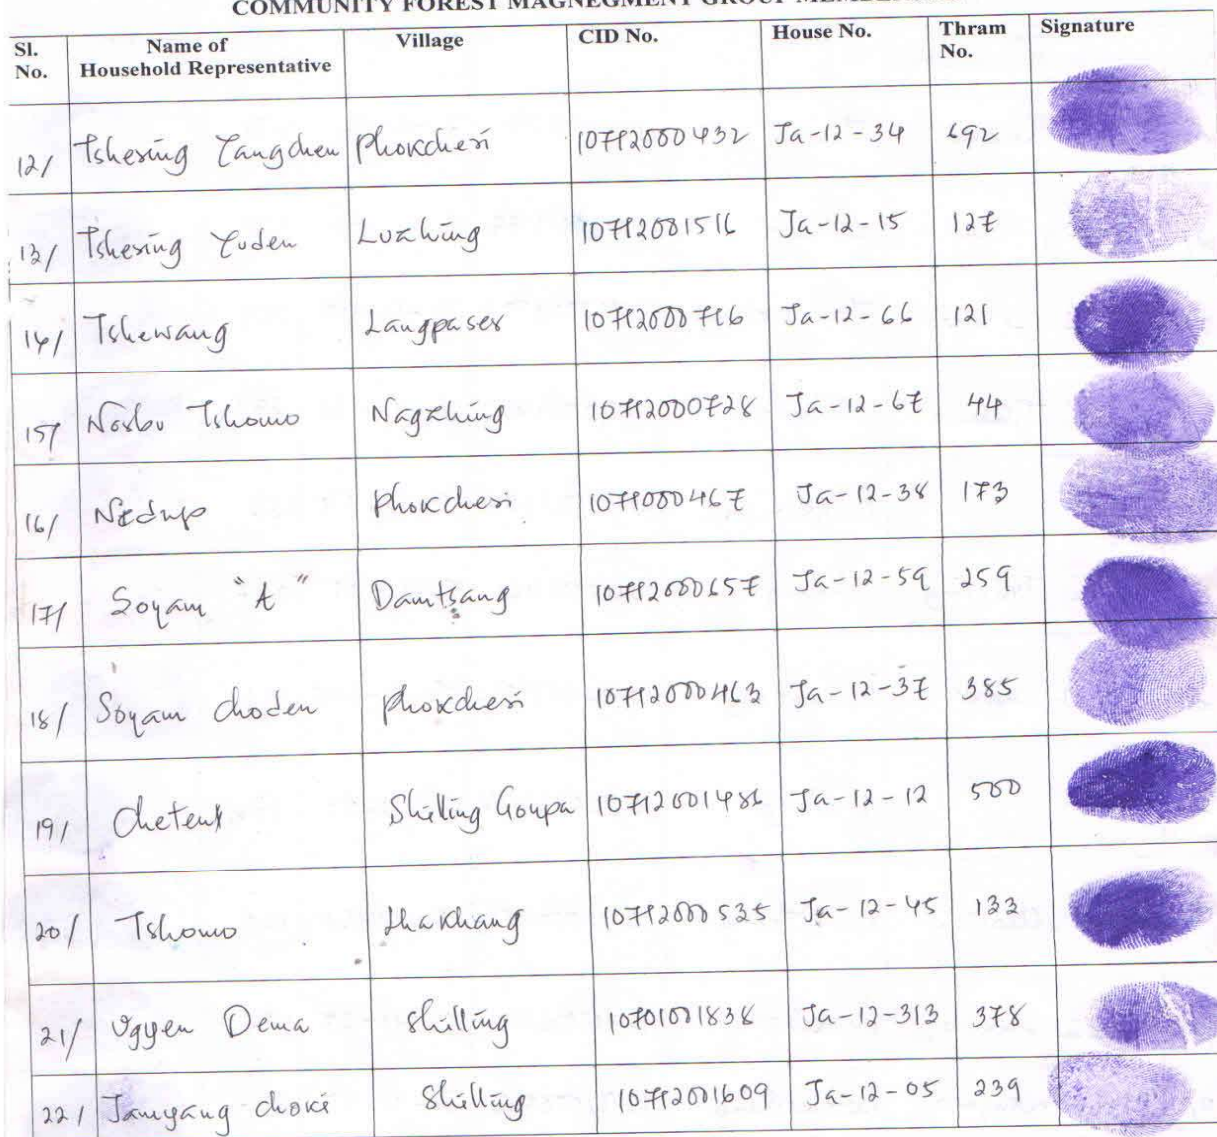 COMMUNITY FOREST MAGNEGMENT GROUP
Sl. No. Name of Household Representative Village CID No. House No. Thram No. Signature
12/ Tshering Yangchen Phokcheri 10712000432 Ja-12-34 692
13/ Tshering Yuden 10712001516 Ja-12-15 127
14/ Tshewang Langpaser 10712000716 Ja-12-66 121
15/ Norbu Tshomo Nagzhing 10712000728 Ja-12-67 44
16/ Nedup Phokcheri 1071000467 Ja-12-38 173
17/ Soyam "A" Damtsang 10712000657 Ja-12-59 259
18/ Soyam Choden Phokcheri 10712000463 Ja-12-37 385
19/ Shilling Goupa 10712001486 Ja-12-12 500
20/ Tshomo Lhakhang 10712000535 Ja-12-45 133
21/ Ugyen Dema Shilling 10701001838 Ja-12-313 378
22/ Jamyang choki Shilling 10712001609 Ja-12-05 239